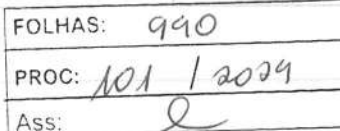 FOLHAS: 990
PROC: 101 / 2029
Ass: